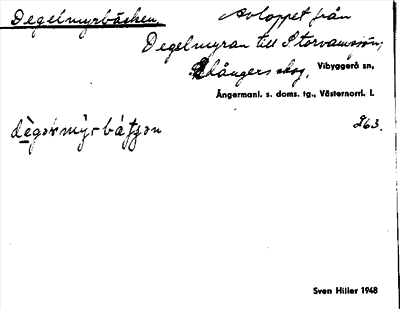 Degelmyrbäcken,
Avloppet från
Degelmyran till Storvamsjön,
långers skog, Vibyggerå sn,
Ångermanl. s. doms. tg., Västernorrl. l.
263.
Sven Hiller 1948